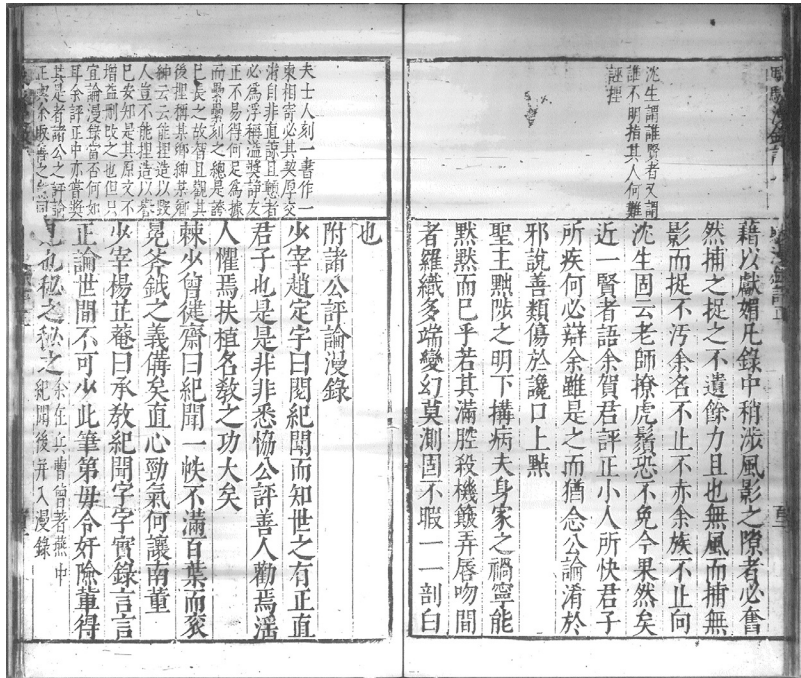 沈生謂誰賢者又謂
誰不明指其人何難
誣捏
藉以獻媚凡錄中稍涉風影之隙者必奮
然捕之捉之不遺餘力且也無風而捕無
影而捉不污余名不止不赤余族不止向
沈生固云老師撩虎鬚恐不免今果然矣
近一賢者語余賀君評正小人所快君子
所疾何必辯余雖是之而猶念公論淆於
邪說善類傷於讒口上㸃
聖主黜陟之明下搆病夫身家之禍寧能
默默而已乎若其滿腔殺機簸弄唇吻間
者羅織多端變幻莫測固不暇一一剖白
夫士人刻一書作一
柬相寄必其契厚交
游自非直諒且願者
必為浮稱溢獎諍友
正不易得何足為據
而纍纍刻之總是誇
已長之故智且觀其
後捏稱某鄉紳某鄉
紳云云能捏造以毀
人豈不能捏造以譽
已安知是其原文不
增益刪改之也但只
宜論漫錄當否何如
耳余評正中亦嘗獎
其是者諸公之評論
也
附諸公評論漫錄
少宰趙定宇曰閱紀聞而知世之有正直
君子也是是非非悉恊公評善人勸焉滛
人懼焉扶植名敎之功大矣
棘少曾健齋曰紀聞一帙不滿百葉而衮
冕斧鉞之義備矣直心勁氣何讓南董
少宰楊正菴曰承敎紀聞字字實錄言言
正論世間不可少此筆第毋令奸險輩得
見也秘之秘之余在兵曹曾著燕中
紀聞後并入漫錄